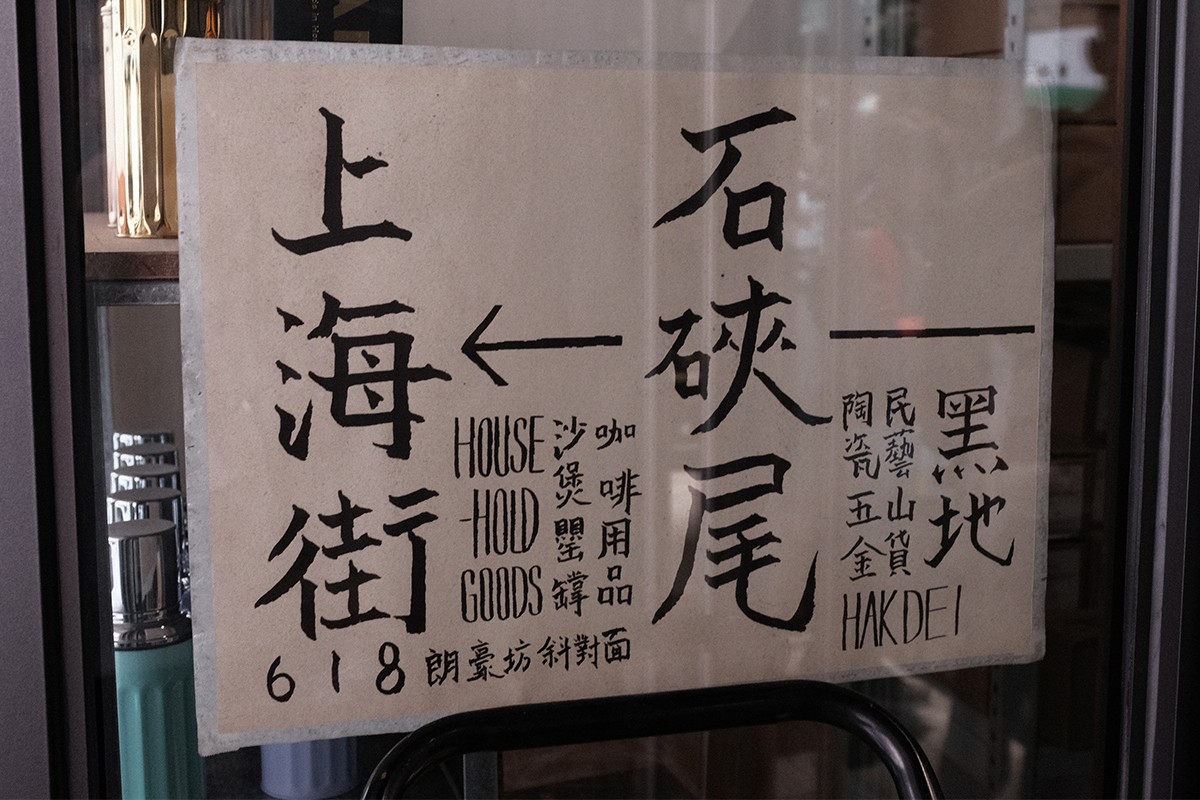 黑地
民藝山貨
陶瓷五金
HAKDEI
石硤尾
咖啡用品
沙煲罌罉
HOUSE
-HOLD
GOODS
上海街
618 朗豪坊斜對面